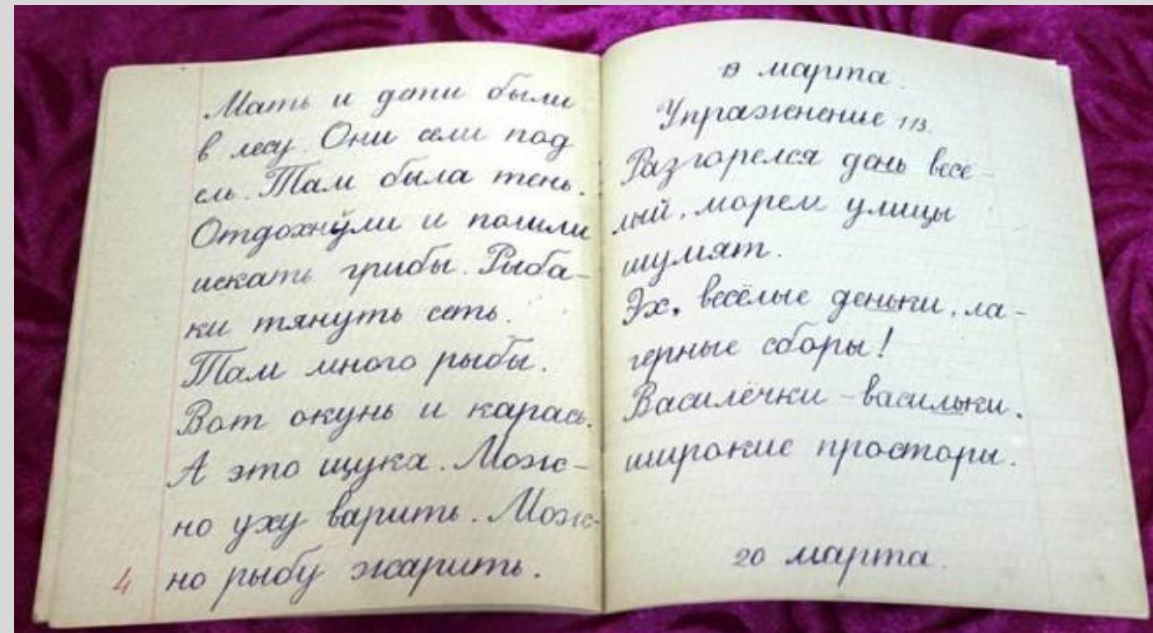 Мать и дети были
в лесу. Они сели под
ель. Там была тень.
Отдохнули и пошли
искать грибы. Рыба-
ки тянуть сеть.
Там много рыбы.
Вот окунь и карась.
А это щука. Мож-
но уху варить. Мож-
но рыбу жарить.
4
19 марта.
Упражнение 113.
Разгорелся день весё-
лый, морем улицы
шумят.
Эх, весёлые деньки, ла-
герные сборы!
Василёчки - васильки,
широкие просторы.
20 марта.